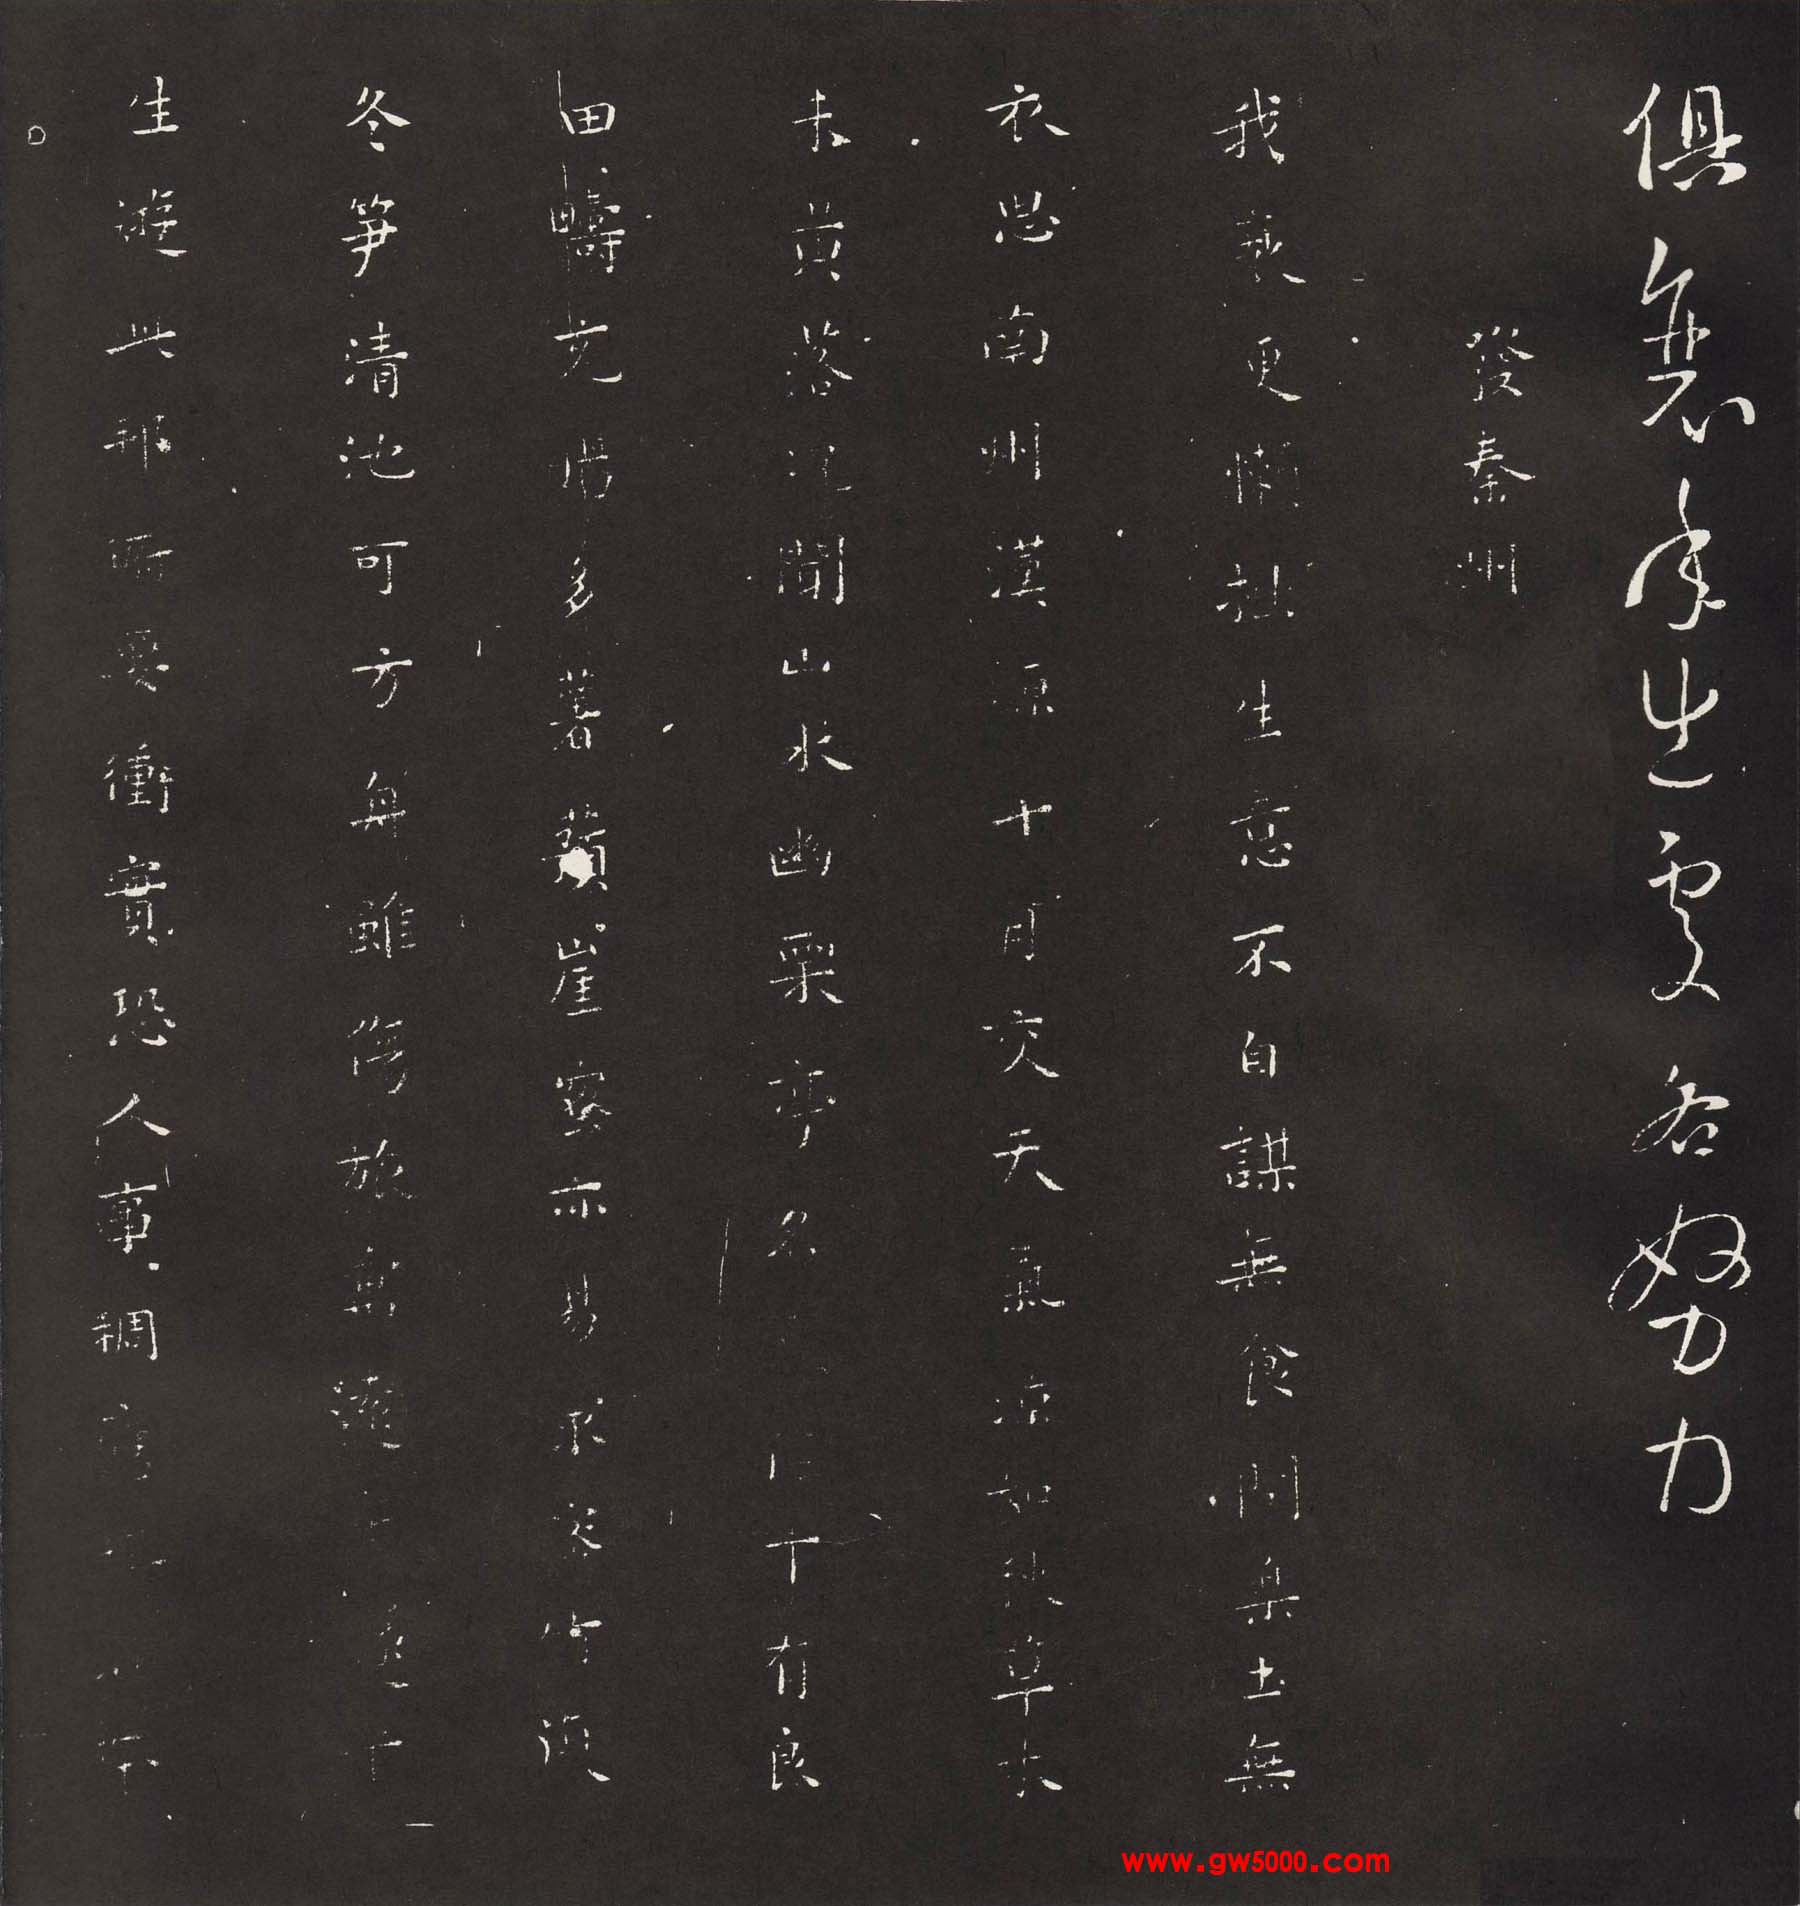 俱衰年出處各努力
發秦州
我衰更懶拙生意不自謀無食問樂土無
衣思南州漢源十月交天氣涼如秋草木
未黃落況聞山水幽栗亭名下有良
田疇充腸多薯蕷崖蜜亦易求密竹復
冬笋清池可方舟雖傷旅寓遠遂平
生遊此邦俯要衝實恐人事稠應
www.gw5000.com